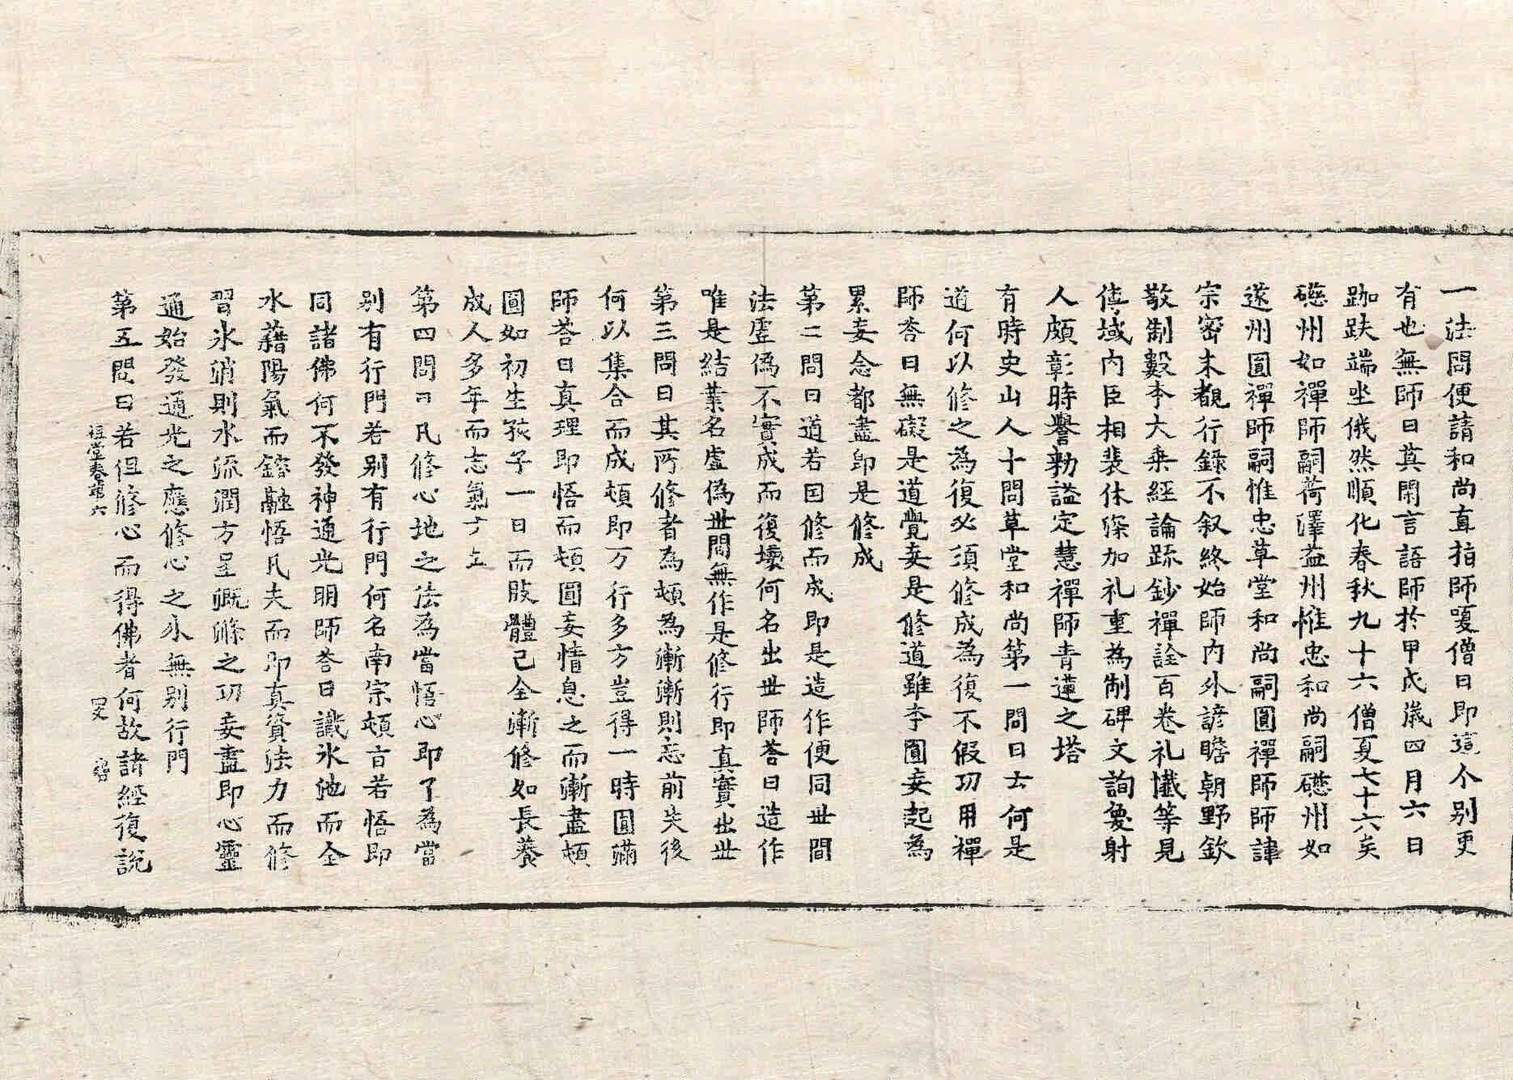 一法問便請和尚直指師嗄僧曰即這个別更
有也無師曰莫閑言語師於甲戌歲四月六日
跏趺端坐俄然順化春秋九十六僧夏七十六矣
礠州如禪師嗣荷澤益州惟忠和尚嗣礠州如
遂州圓禪師嗣惟忠草堂和尚嗣圓禪師師諱
宗密未覩行錄不叙終始師內外諳瞻朝野欽
敬制數本大乘經論疏鈔禪詮百卷礼懺等見
傳域內臣相裴休深加礼重為制碑文詢奐射
人頗彰時譽勑謚定慧禪師青蓮之塔
有時史山人十問草堂和尚第一問曰云何是
道何以修之為復必須修成為復不假功用禪
師荅曰無礙是道覺妄是修道雖本圓妄起為
累妄念都盡即是修成
第二問曰道若因修而成即是造作便同世間
法虛偽不實成而復壞何名出世師荅曰造作
唯是結業名虛偽世間無作是修行即真實出世
第三問曰其所修者為頓為漸漸則忘前失後
何以集合而成頓即万行多方豈得一時圓滿
師荅曰真理即悟而頓圓妄情息之而漸盡頓
圓如初生孩子一日而肢體已全漸修如長養
成人多年而志氣方立
第四問曰凡修心地之法為當悟心即了為當
別有行門若別有行門何名南宗頓旨若悟即
同諸佛何不發神通光明師荅曰識氷池而全
水藉陽氣而鎔融悟凡夫而即真資法力而修
習氷消則水流潤方呈溉滌之功妄盡即心靈
通始發通光之應修心之外無別行門
第五問曰若但修心而得佛者何故諸經復說
祖堂卷第六